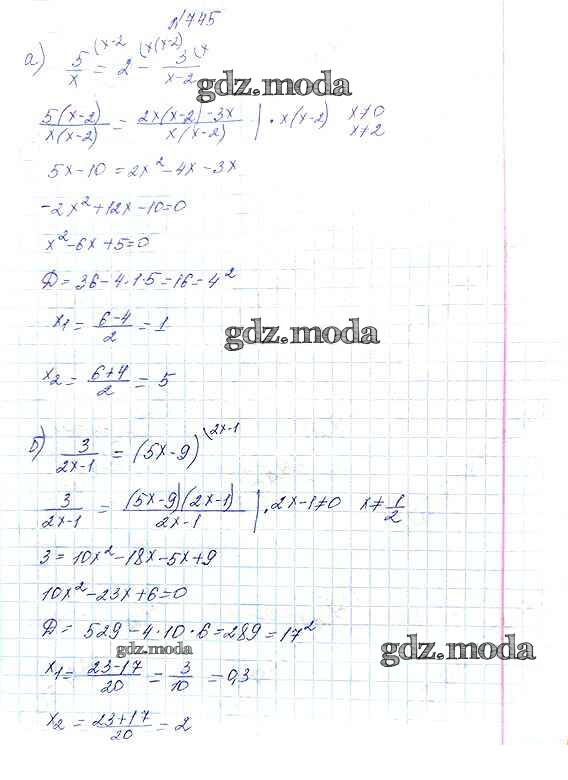 №745
а) 5/x (x-2 = 2 (x(x-2) - 3/(x-2) (x
gdz.moda
5(x-2)/x(x-2) = 2x(x-2)-3x/x(x-2) | · x(x-2) x≠0 x≠2
5x-10=2x²-4x-3x
-2x²+12x-10=0
x²-6x+5=0
gdz.moda
D=36-4·1·5=16=4²
x₁=6-4/2=1
gdz.moda
x₂=6+4/2=5
б) 3/2x-1 = (5x-9) (2x-1
3/2x-1 = (5x-9)(2x-1)/2x-1 | · 2x-1≠0 x≠1/2
3=10x²-18x-5x+9
10x²-23x+6=0
D=529-4·10·6=289=17²
gdz.moda
gdz.moda
x₁=23-17/20=3/10=0,3
x₂=23+17/20=2